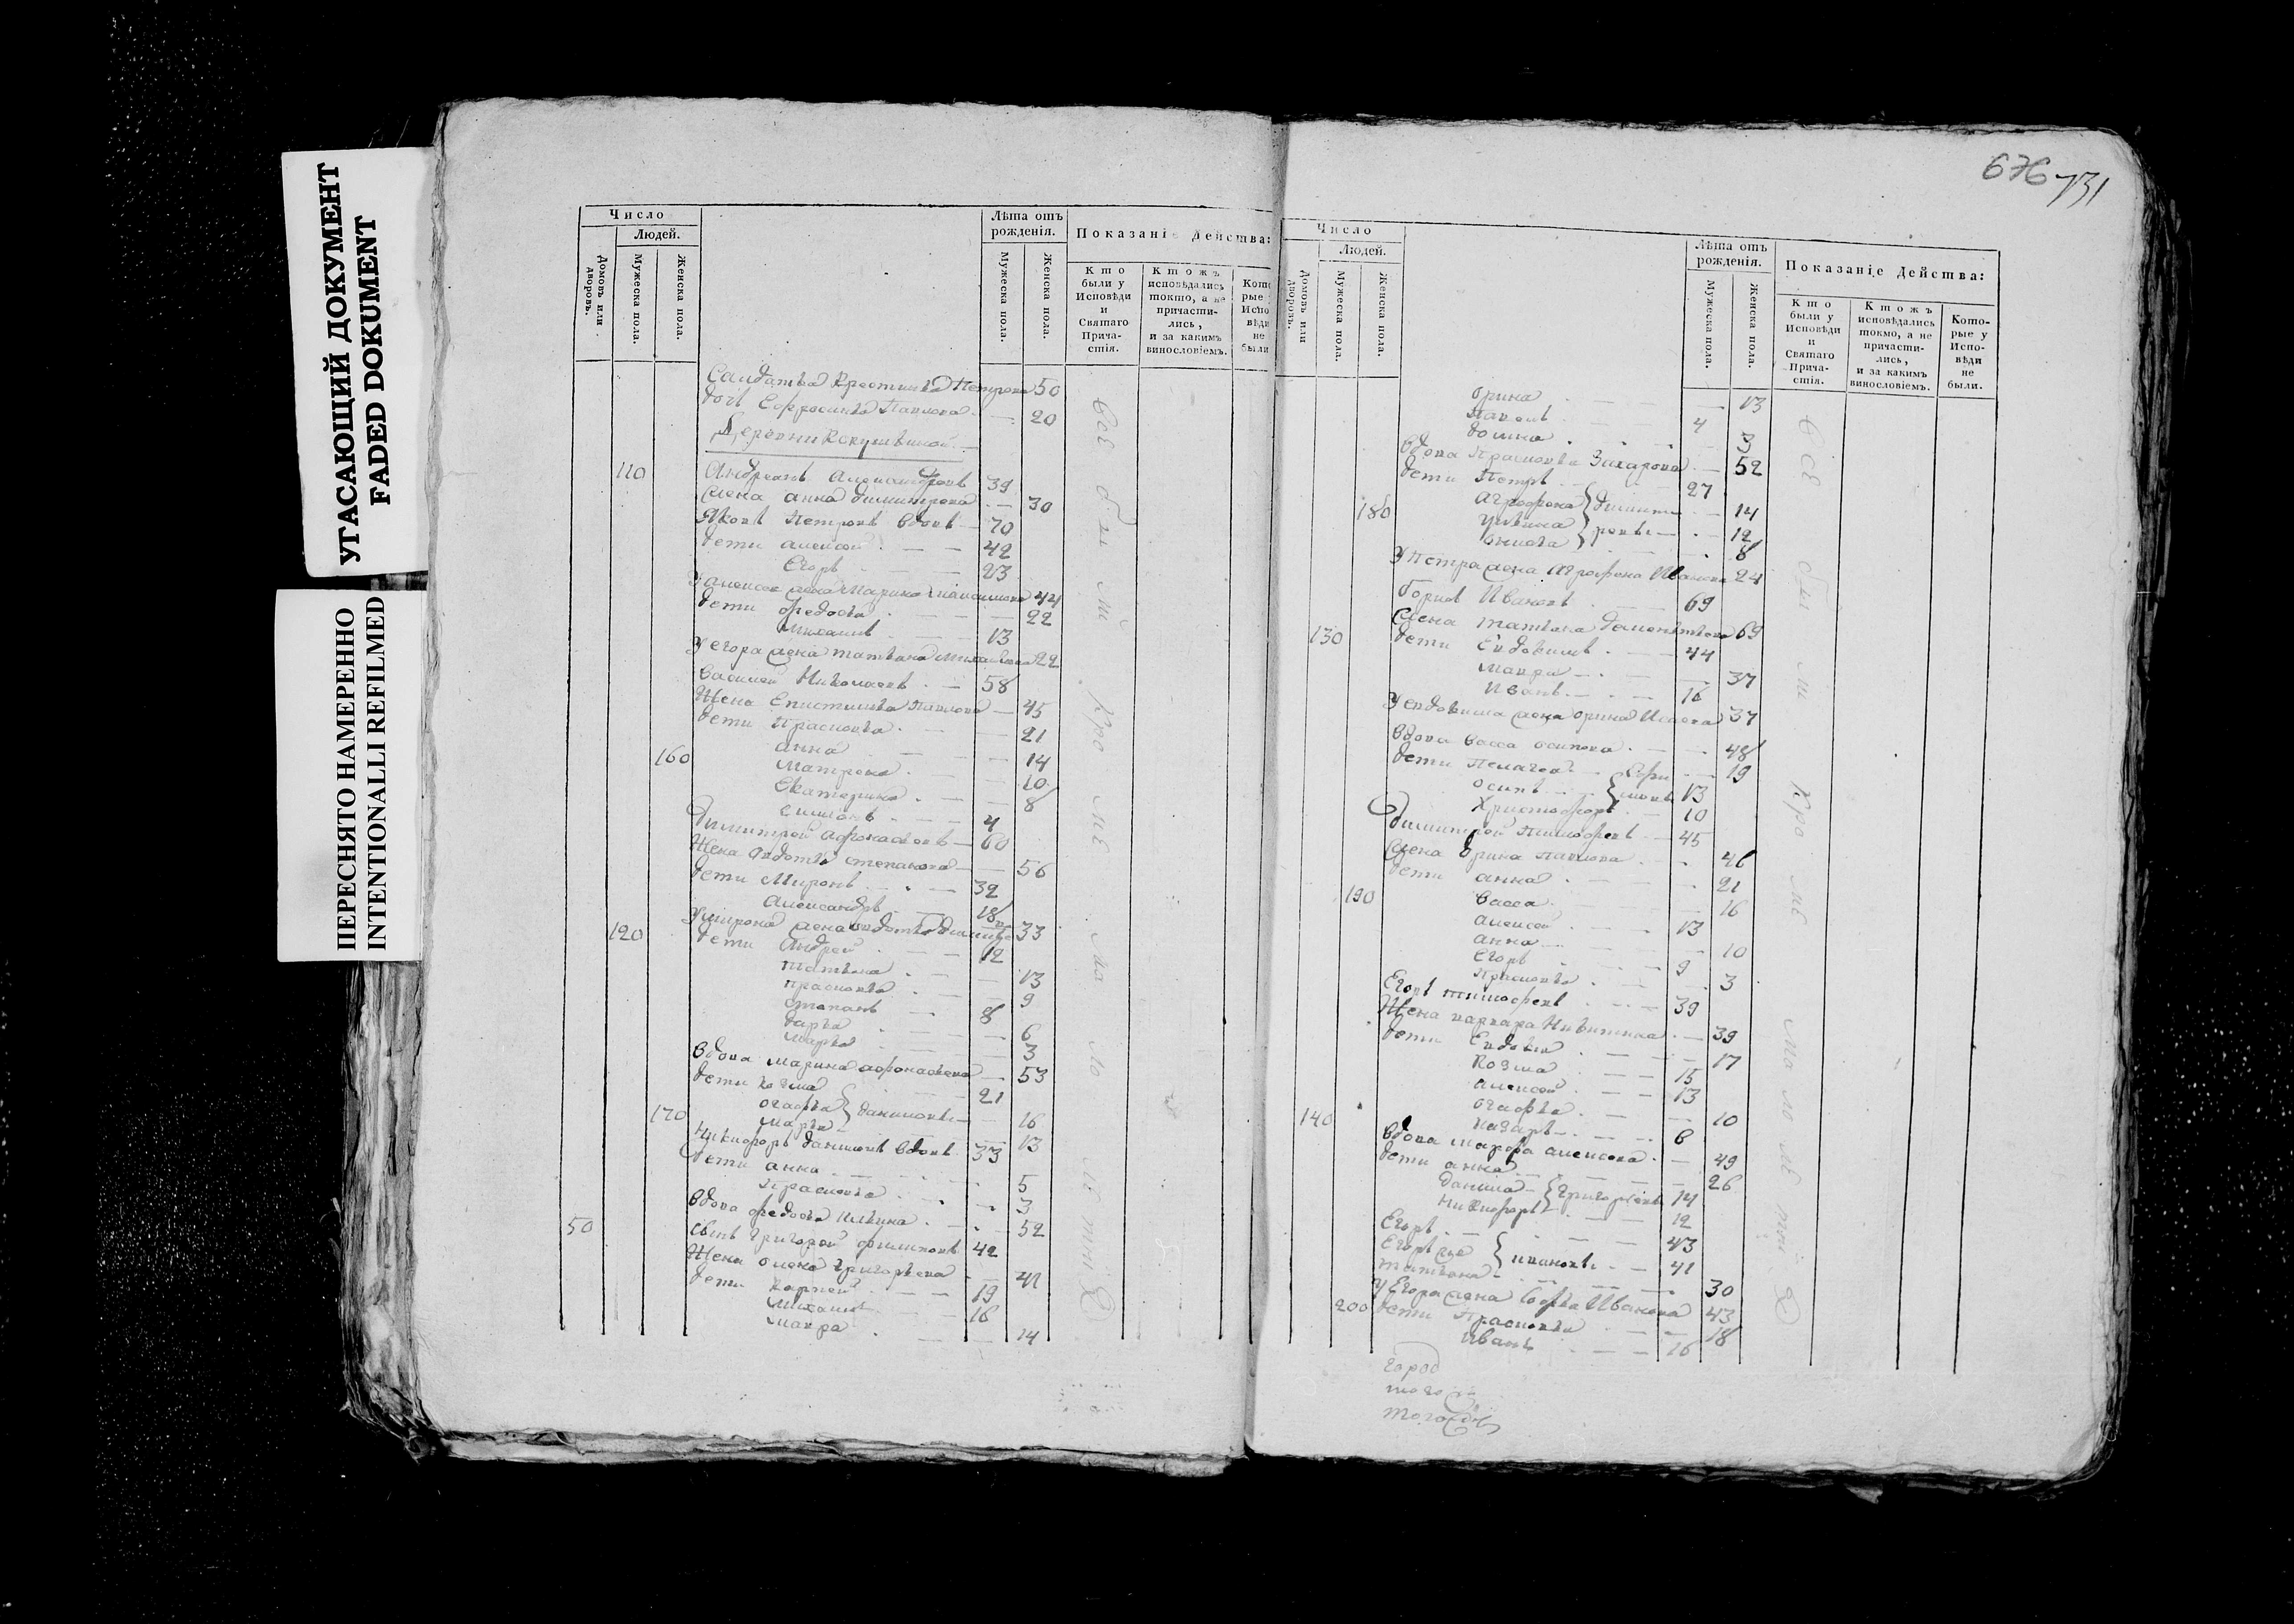 УГАСАЮЩИЙ ДОКУМЕНТ
FADED DOKUMENT
ПЕРЕСНЯТО НАМЕРЕННО
INTENTIONALLI REFILMED
Число
Людей.
Домовъ или дворовъ.
Мужеска пола.
Женска пола.
Лѣта отъ рожденія.
Мужеска пола.
Женска пола.
Показаніе Действа:
Кто были у Исповѣди и Святаго Прича-стія.
Ктожъ исповѣдались токмо, а не причасти-лись, и за какимъ винословіемъ.
Кото рые Испо вѣди не были
Петрова 50
дочь Ефросинья Павлова 20
Деревни
110 Андреянъ Александровъ 39
жена анна димитрева 30
Яковъ Петровъ вдовъ 70
дети алексей 42
Егоръ 23
у алексея жена Марина 44
дети федосья 22
михаилъ 13
у егора жена татьяна 22
василей Николаевъ 58
Жена Епистимья Павлова 45
дети Прасковья 21
анна 14
160 Матрена 10
Екатерина 8
симионъ 4
Димитрей афонасьевъ 60
Жена авдотья степанова 56
дети Миронъ 32
Александръ 18
у мирона жена авдотья 33
120 дети Андрей 12
татьяна 13
прасковья 9
степанъ 8
дарья 6
марья 3
вдова марина афонасьева 53
дети козма 21
огафья даниловы 16
170 марья 13
Никифоръ даниловъ вдовъ 33
дети анна 5
Прасковья 3
вдова федосья Ильина 52
50 сынъ григорей филиповъ 42
Жена олена григорьева 41
дети Карпей 19
Михаилъ 16
мавра 14
все были кроме малолетныхъ
676 731
Число
Людей.
Домовъ или дворовъ.
Мужеска пола.
Женска пола.
Лѣта отъ рожденія.
Мужеска пола.
Женска пола.
Показаніе Действа:
Кто были у Исповѣди и Святаго Прича-стія.
Ктожъ исповѣдались токмо, а не причасти-лись, и за какимъ винословіемъ.
Кото-рые у Испо-вѣди не были.
орина 13
Павелъ 4
домна 3
вдова Прасковья Захарова 52
дети Петръ 27
180 Агрофена 14
Ульяна 12
8
у Петра жена Агрофена Иванова 24
борисъ Ивановъ 69
жена татьяна 69
130 дети Евдокимъ 44
мавра 37
Иванъ 16
у евдокима жена орина 37
вдова васса осипова 48
дети Пелагея 19
осипъ 13
Христофоръ 10
димитрей тимофеевъ 45
жена орина павлова 46
дети анна 21
190 васса 16
алексей 13
анна 10
Егоръ 9
Прасковья 3
Егоръ тимофеевъ 39
Жена варвара Никитина 39
дети Евдокия 17
Козма 15
алексей 13
огафья 10
140 Назаръ 6
вдова марфа алексеева 49
дети анна 26
данила григорьевы 14
Никифоръ 12
Егоръ 43
Егоръ же ивановы 41
татьяна 30
у Егора жена софья Иванова 43
200 дети Прасковья 18
Иванъ 16
все были кроме малолетныхъ
город